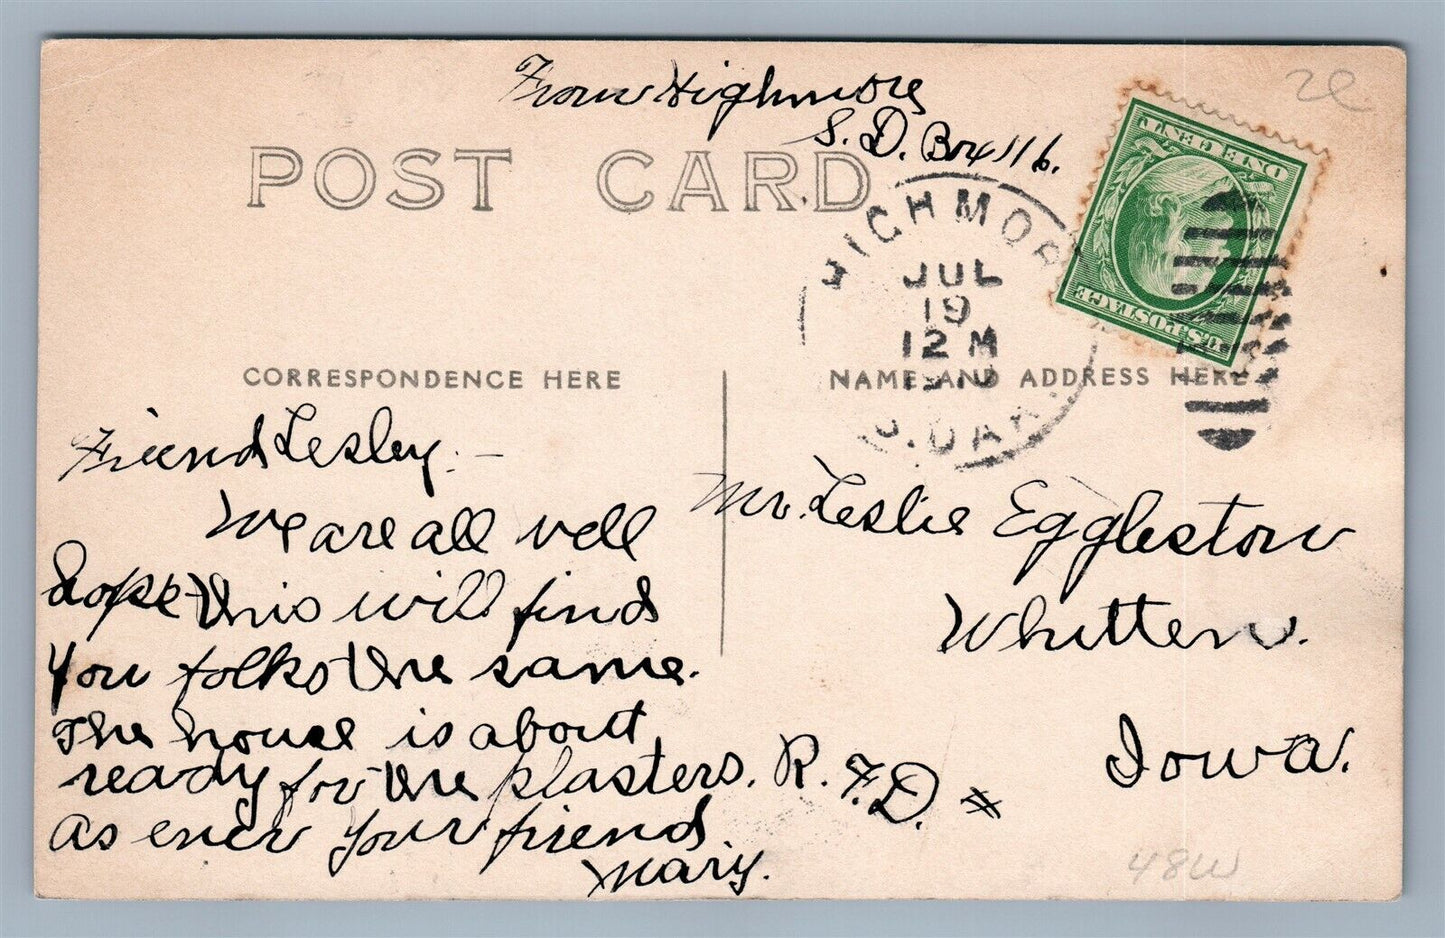 From Highmore
S. D. Box 116.
2e
POST CARD
ONE CENT
U.S. POSTAGE
HIGHMOR
JUL
19
12 M
S. DAK.
CORRESPONDENCE HERE
NAME AND ADDRESS HERE
Friend Lesley:-
We are all well
hope this will find
you folks the same.
The house is about
ready for the plasters.
As ever your friend
Mary.
Mr. Leslie Eggleston
Whitten.
Iowa.
R. F. D. #
48W